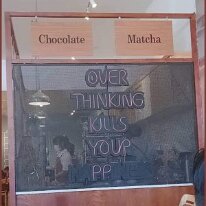 Chocolate
Matcha
OVER
THINKING
KILLS
YOUR